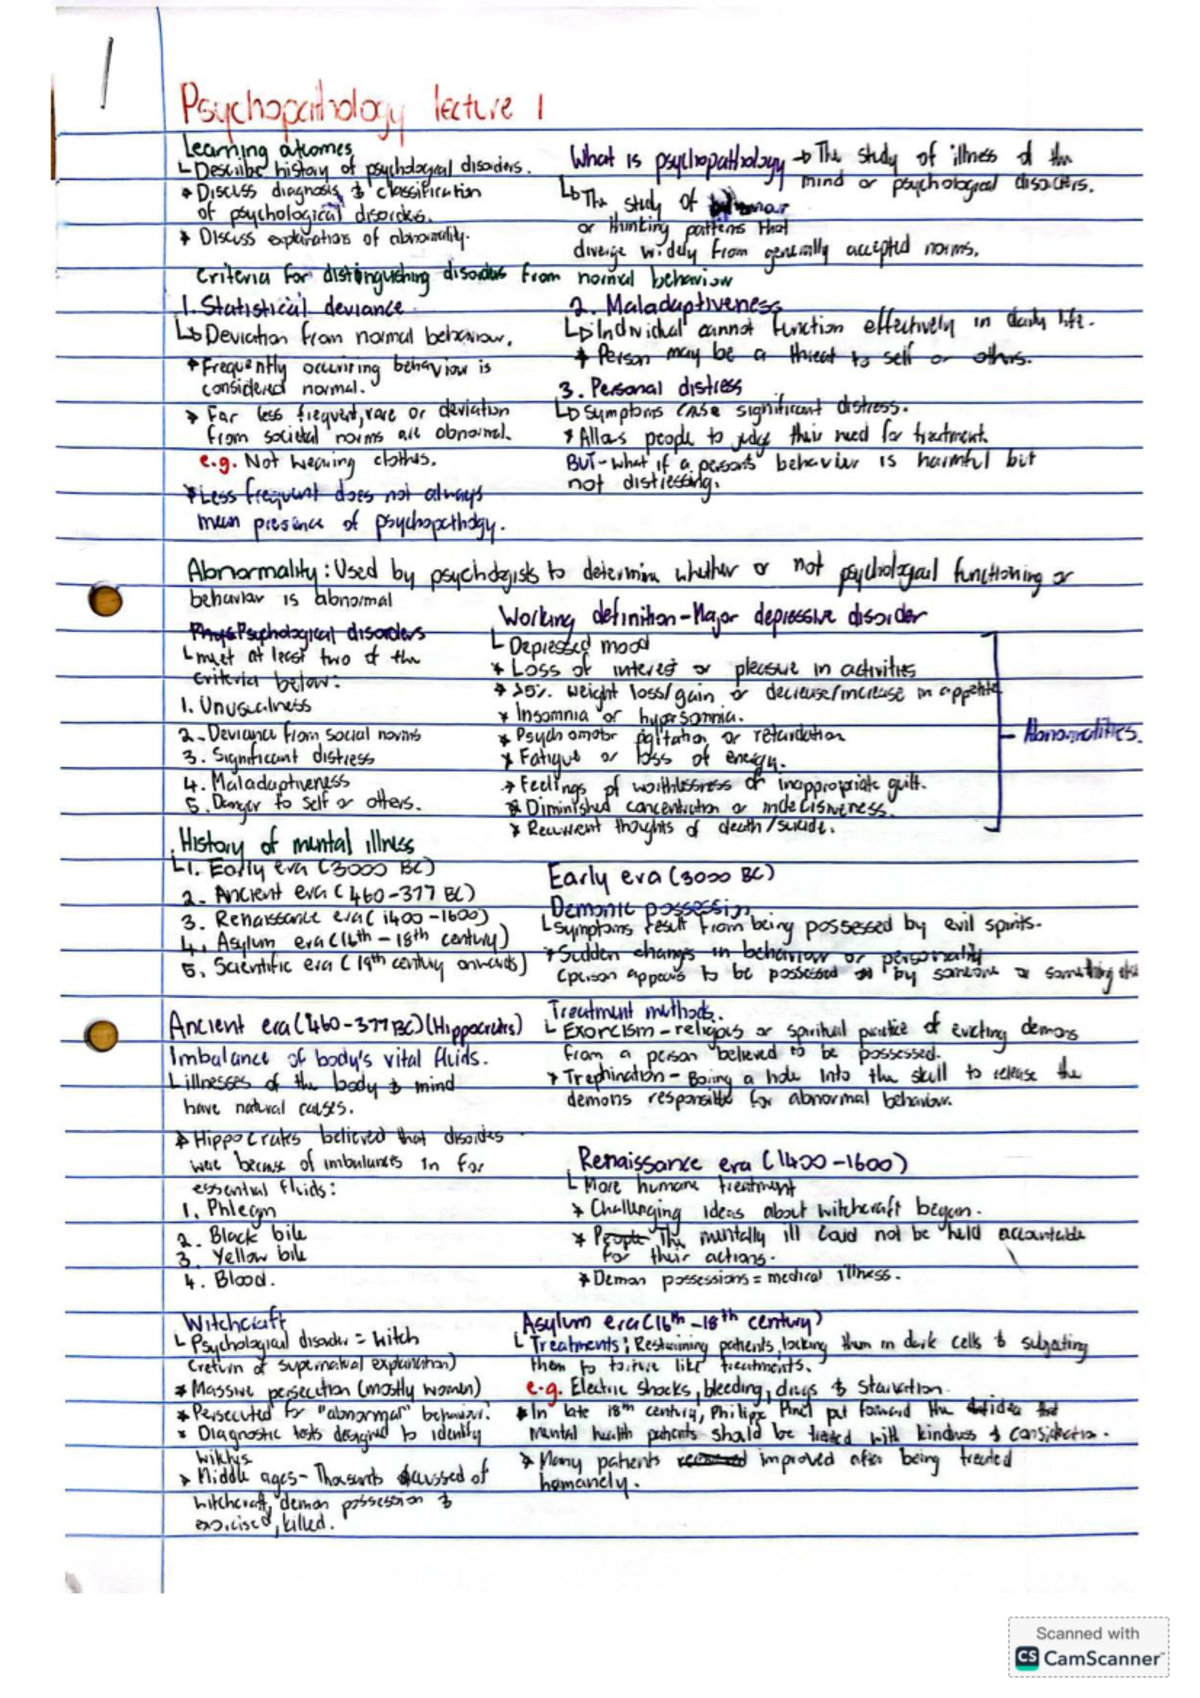 1
Psychopathology lecture 1
Learning outcomes
Describe history of psychological disorders.
Discuss diagnosis & classification
of psychological disorders.
Discuss explanations of abnormality.
What is psychopathology → The study of illness of the
mind or psychological disorders.
The study of behaviour
or thinking patterns that
diverge widely from generally accepted norms.
Criteria for distinguishing disorders from normal behaviour
1. Statistical deviance
Deviation from normal behaviour.
Frequently occurring behaviour is
considered normal.
Far less frequent, rare or deviation
from societal norms are abnormal.
e.g. Not wearing clothes.
Less frequent does not always
mean presence of psychopathology.
2. Maladaptiveness
Individual cannot function effectively in daily life.
Person may be a threat to self or others.
3. Personal distress
Symptoms cause significant distress.
Allows people to judge their need for treatment.
BUT - what if a persons behaviour is harmful but
not distressing.
Abnormality: Used by psychologists to determine whether or not psychological functioning or
behaviour is abnormal
Psychological disorders
meet at least two of the
criteria below:
1. Unusualness
2. Deviance from social norms
3. Significant distress
4. Maladaptiveness
5. Danger to self or others.
Working definition - Major depressive disorder
Depressed mood
Loss of interest or pleasure in activities
>5% weight loss/gain or decrease/increase in appetite
Insomnia or hypersomnia.
Psychomotor agitation or retardation
Fatigue or loss of energy.
Feelings of worthlessness or inappropriate guilt.
Diminished concentration or indecisiveness.
Recurrent thoughts of death/suicide.
Abnormalities.
History of mental illness
1. Early era (3000 BC)
2. Ancient era (460-377 BC)
3. Renaissance era (1400-1600)
4. Asylum era (16th - 18th century)
5. Scientific era (19th century onwards)
Early era (3000 BC)
Demonic possession
Symptoms result from being possessed by evil spirits.
Sudden changes in behaviour or personality
(person appears to be possessed by someone or something else
Treatment methods.
Exorcism - religious or spiritual practice of evicting demons
from a person believed to be possessed.
Trephination - Boring a hole into the skull to release the
demons responsible for abnormal behaviour.
Ancient era (460-377 BC) (Hippocrates)
Imbalance of body's vital fluids.
illnesses of the body & mind
have natural causes.
Hippocrates believed that disorders
were because of imbalances in for
essential fluids:
1. Phlegm
2. Black bile
3. Yellow bile
4. Blood.
Renaissance era (1400-1600)
More humane treatment
Challenging ideas about witchcraft began.
People The mentally ill could not be held accountable
for their actions.
Demon possessions = medical illness.
Witchcraft
Psychological disorder = witch
(return of supernatural explanation)
Massive persecution (mostly women)
Persecuted for "abnormal" behaviour.
Diagnostic tests designed to identify
witches
Middle ages - Thousands accused of
witchcraft, demon possession &
exorcised, killed.
Asylum era (16th - 18th century)
Treatments: Restraining patients, locking them in dark cells & subjecting
them to torture like treatments.
e.g. Electric shocks, bleeding, drugs & starvation.
In late 18th century, Philippe Pinel put forward the idea that
mental health patients should be treated with kindness & consideration.
Many patients improved after being treated
humanely.
Scanned with
CS CamScanner